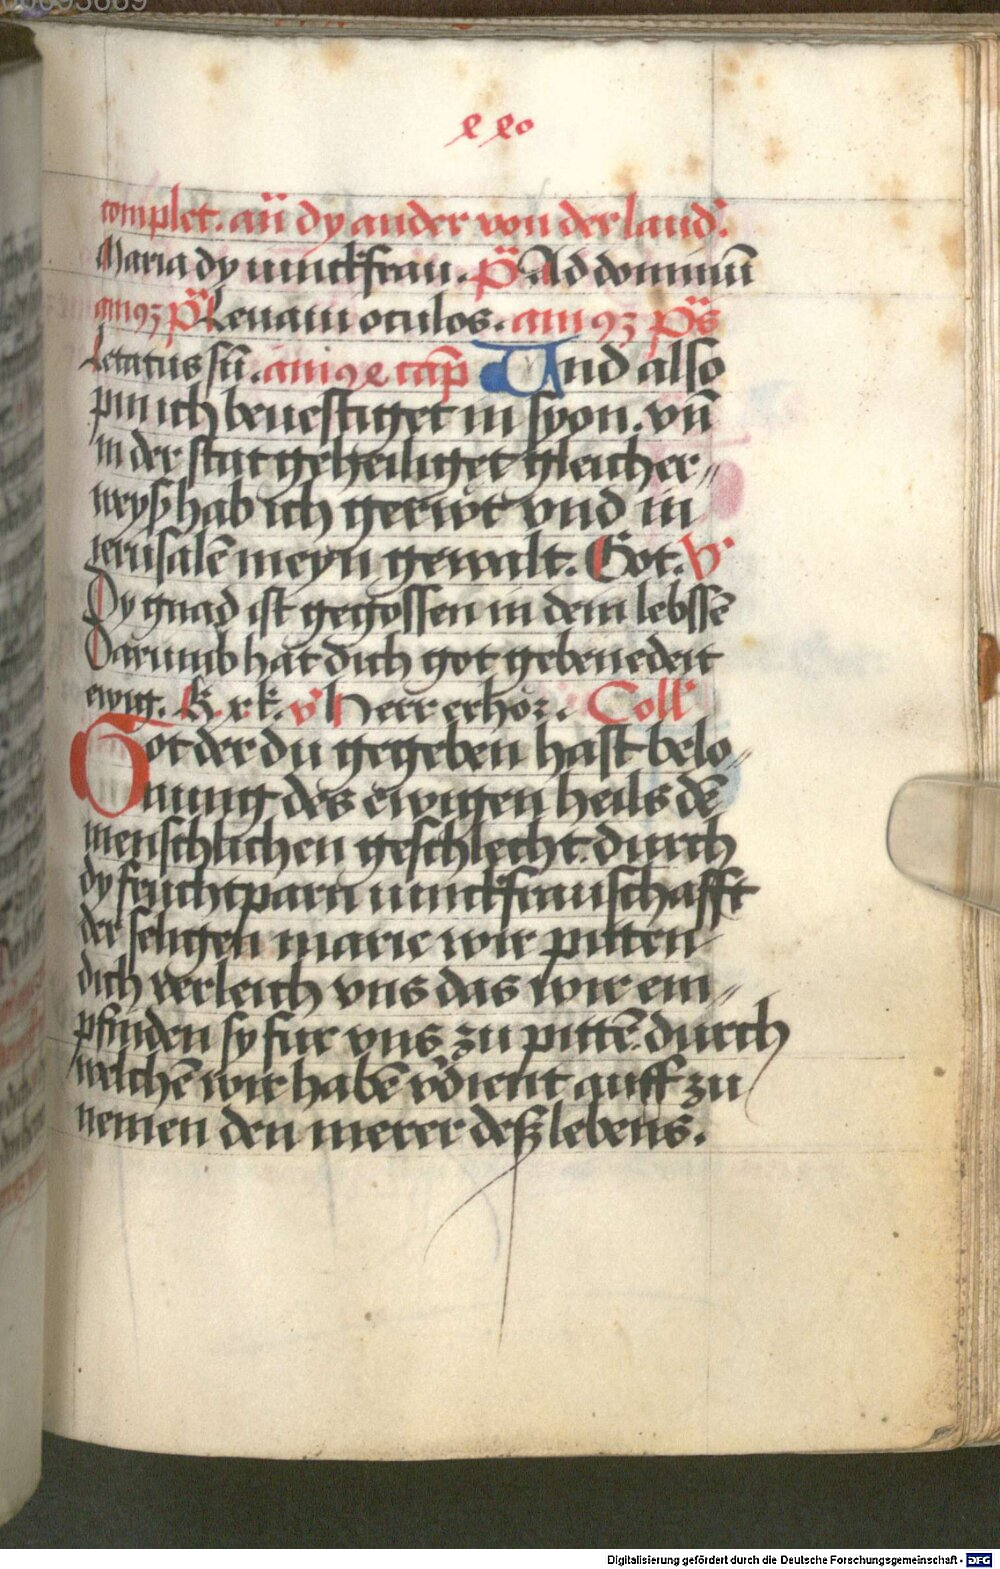 complet. an̄ dy ander von der laud᷑.
Maria dy iunckfrau. p̄s Ad dominū
an̄ 9ꝫ p̄s Leuaui oculos. an̄ 9ꝫ p̄s
Letatus sū. an̄ cap̄ Vnd also
pin ich beuestiget in syon. vn̄
in der stat geheiliget gleicher〃
weyß hab ich gerwt vnd in
ierusalē meyn gewalt. Got. v᷑
Dy gnad ist gegossen in dein lebssē
Darumb hat dich got gebenedeit
ewig. k. x k. v᷑ Herr erhoꝛ. Coll᷑
Got der du gegeben hast belo〃
nung des ewigen heils dē
menschlichen geschlecht. durch
dy fruchtparn iunckfrauschafft
der seligen marie wir pitten
dich verleich vns das wir em〃
pfinden sy fur vns zu pittē. durch
welchē wir habē v᷑dient auff zu
nemen den merer deß lebens.
Digitalisierung gefördert durch die Deutsche Forschungsgemeinschaft - DFG